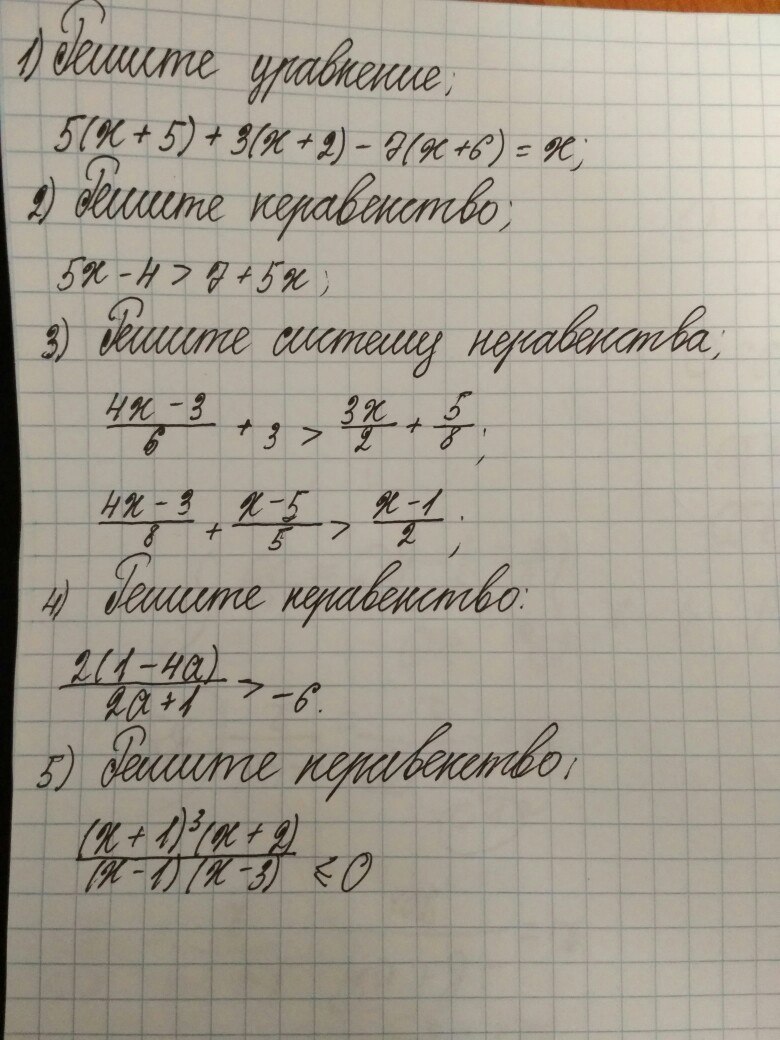 1) Решите уравнение;
5(x + 5) + 3(x + 2) - 7(x+6) = x;
2) Решите неравенство;
5x - 4 > 7 + 5x;
3) Решите систему неравенства;
(4x - 3)/6 + 3 > 3x/2 + 5/8;
(4x - 3)/8 + (x - 5)/5 > (x - 1)/2;
4) Решите неравенство:
2(1 - 4a)/(2a + 1) > -6.
5) Решите неравенство;
(x + 1)³(x + 2)/(x - 1)(x - 3) ≤ 0